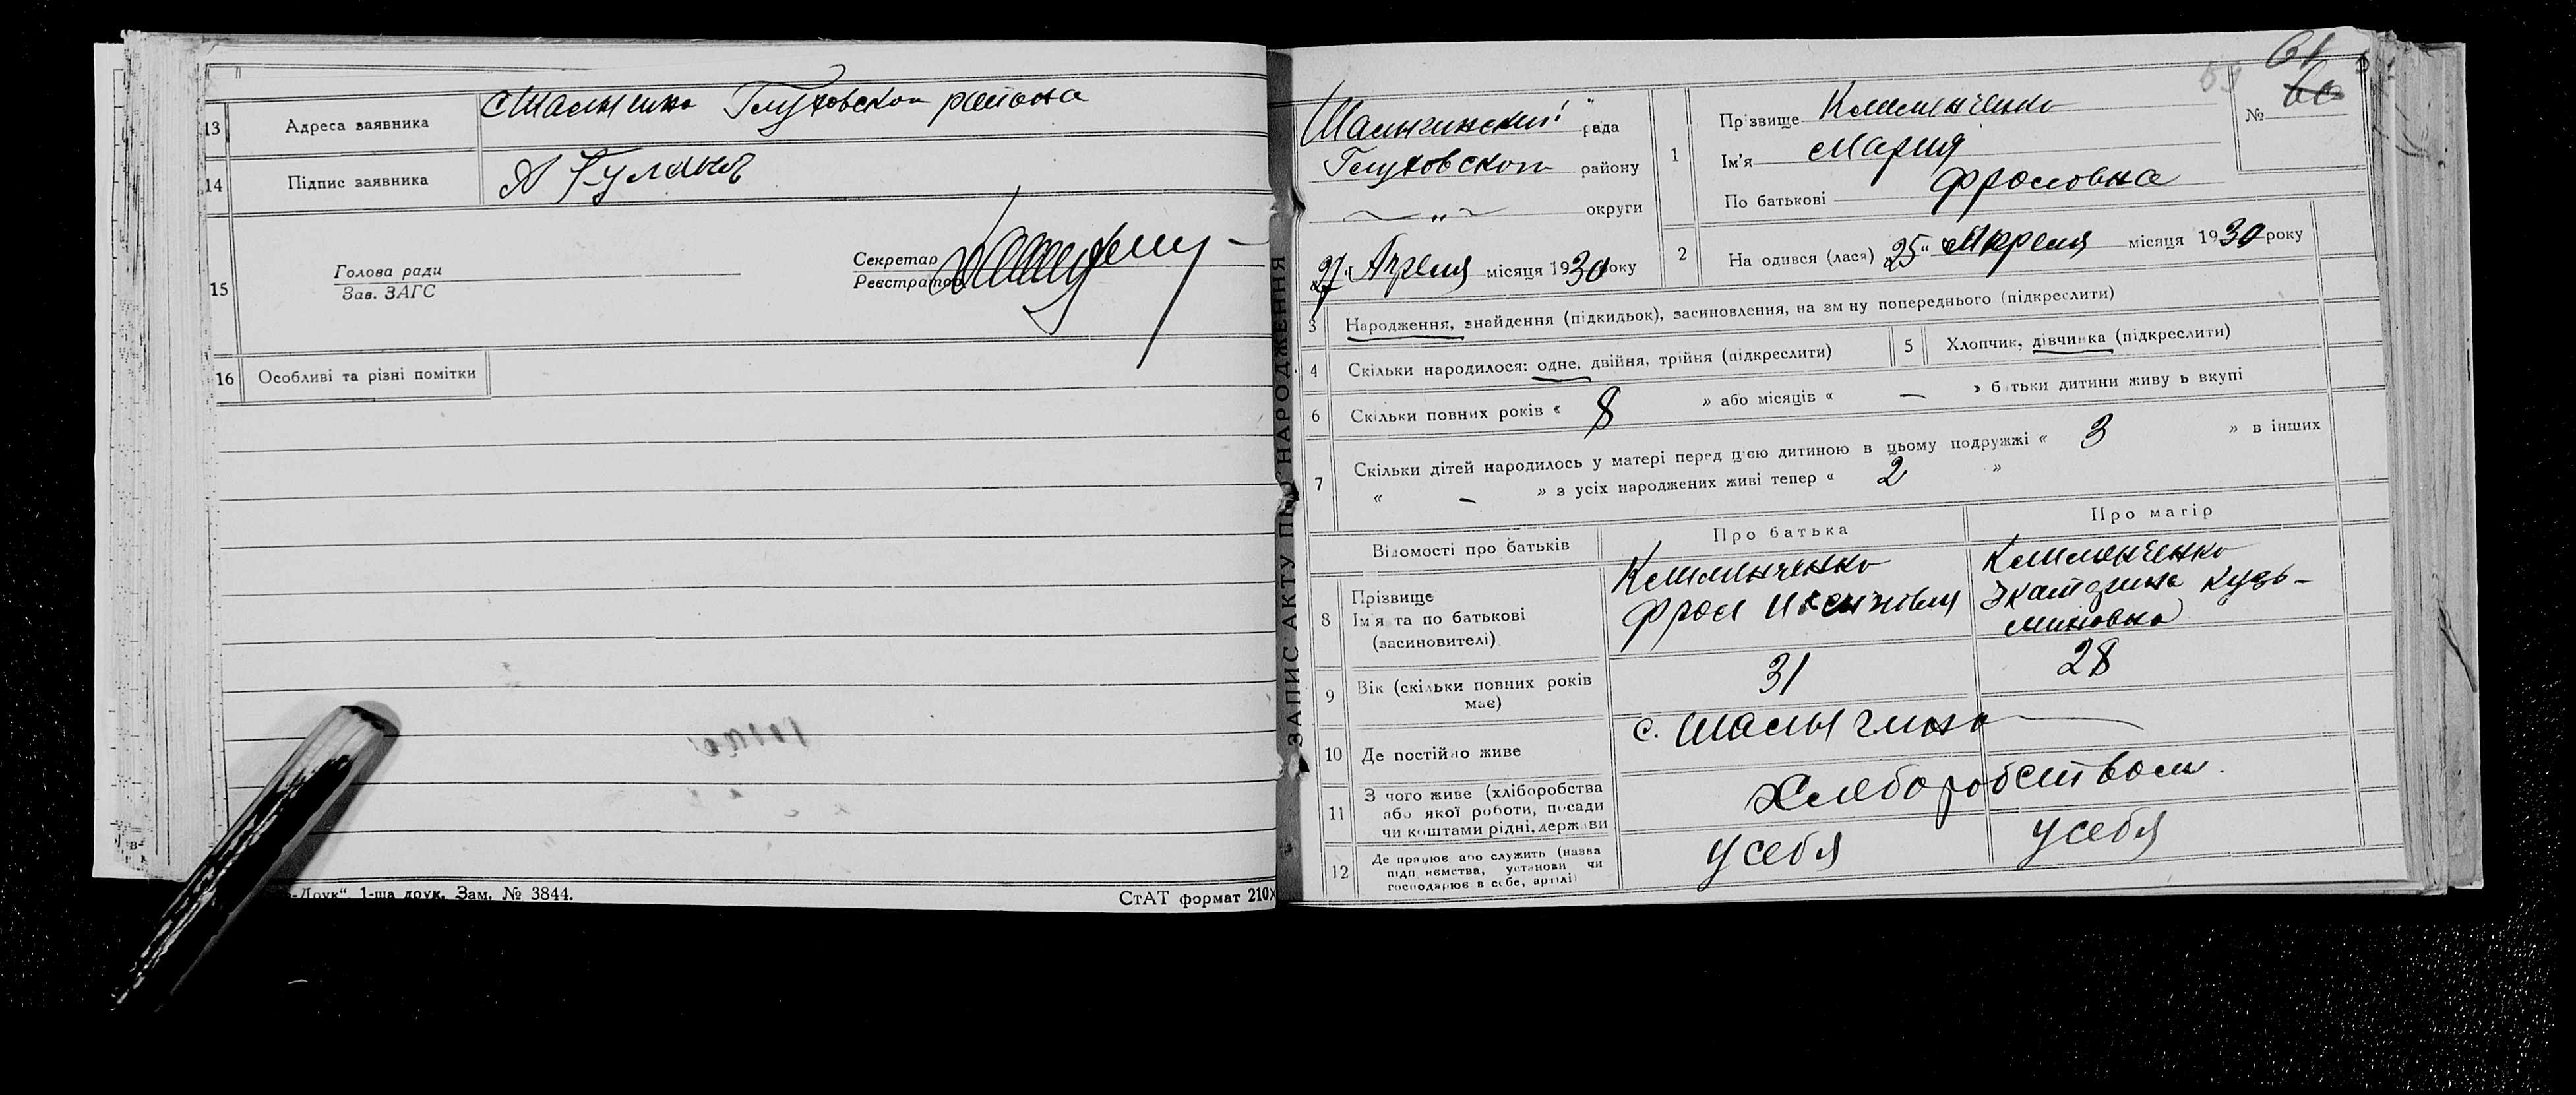 13 Адреса заявника с Шалыгино Глуховского района
14 Підпис заявника
15 Голова ради
Зав. ЗАГС
Секретар
Реєстратор
16 Особливі та різні помітки
-Друк“. 1-ша друк. Зам. № 3844.
СтАТ формат 210×
ЗАПИС АКТУ ПРО НАРОДЖЕННЯ
61
№ 60
Шалыгинский рада
Глуховского району
— „ — округи
27 „ Апреля місяця 1930 року
1 Прізвище Клименченко
Ім'я Мария
По батькові Фроловна
2 На одився (лася) 25 „ Апреля місяця 1930 року
3 Народження, знайдення (підкидьок), засиновлення, на зм ну попереднього (підкреслити)
4 Скільки народилося: одне, двійня, трійня (підкреслити)
5 Хлопчик, дівчинка (підкреслити)
6 Скільки повних років « 8 » або місяців « — » батьки дитини живу ь вкупі
7 Скільки дітей народилось у матері перед цією дитиною в цьому подружжі « 3 » в інших
« — » з усіх народжених живі тепер « 2 »
Відомості про батьків
Про батька
Про матір
8 Прізвище
Ім'я та по батькові
(засиновителі)
Клименченко
Фрол
Клименченко
Екатерина Кузь-
миновна
9 Вік (скільки повних років
має)
31
28
10 Де постійно живе
с. Шалыгино
11 З чого живе (хліборобства
або якої роботи, посади
чи коштами рідні, держави
Хлеборобством.
12 Де працює або служить (назва
підп иємства, установи чи
господарює в себе, артілі)
у себя
у себя